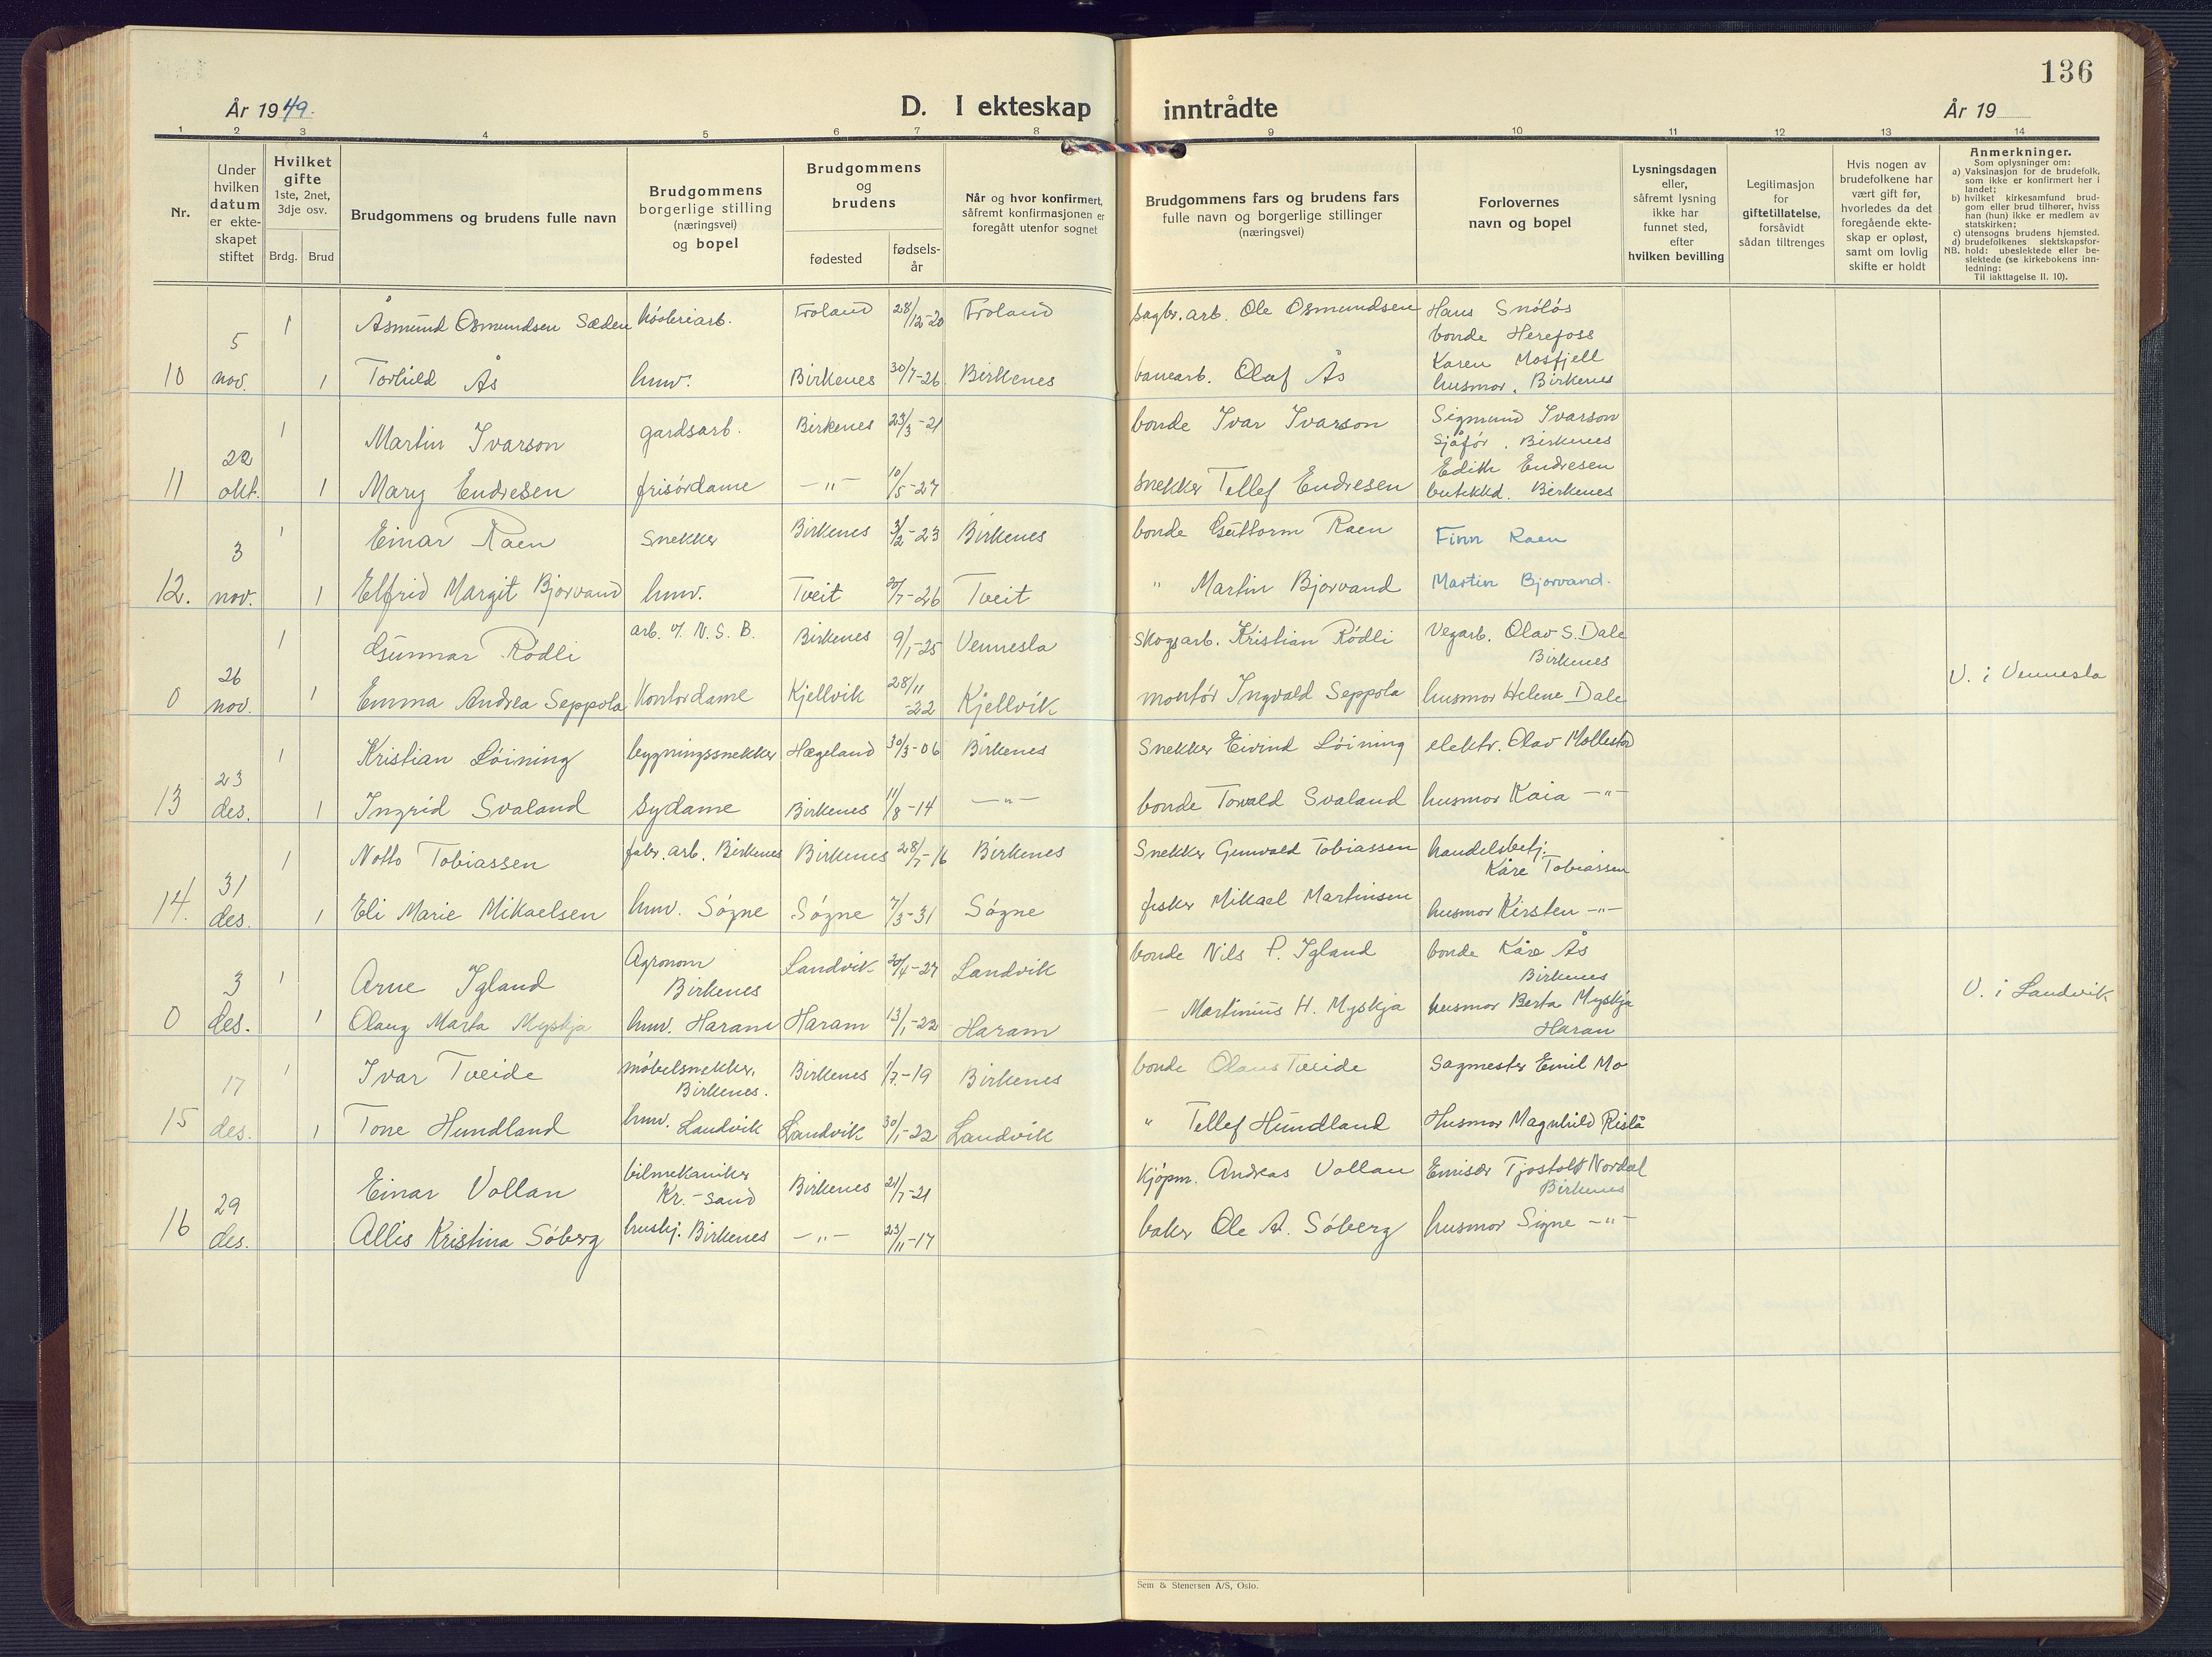 136
År 1949.
D. I ekteskap inntrådte
År 19
1 2 3 4 5 6 7 8 9 10 11 12 13 14
Nr.
Under hvilken datum er ekteskapet stiftet
Hvilket gifte 1ste, 2net, 3dje osv.
Brdg. Brud
Brudgommens og brudens fulle navn
Brudgommens borgerlige stilling (næringsvei) og bopel
Brudgommens og brudens
fødested
fødselsår
Når og hvor konfirmert, såfremt konfirmasjonen er foregått utenfor sognet
Brudgommens fars og brudens fars fulle navn og borgerlige stillinger (næringsvei)
Forlovernes navn og bopel
Lysningsdagen eller, såfremt lysning ikke har funnet sted, efter hvilken bevilling
Legitimasjon for giftetillatelse, forsåvidt sådan tiltrenges
Hvis nogen av brudefolkene har vært gift før, hvorledes da det foregående ekteskap er opløst, samt om lovlig skifte er holdt
Anmerkninger.
Som oplysninger om:
a) Vaksinasjon for de brudefolk, som ikke er konfirmert her i landet;
b) hvilket kirkesamfund brudgom eller brud tilhører, hviss han (hun) ikke er medlem av statskirken;
c) utensogns brudens hjemsted.
d) brudefolkenes slektskapsforhold: ubeslektede eller beslektede (se kirkebokens innledning:
NB.
Til iakttagelse II. 10).
1 Åsmund Osmundsen Sæden Froland 28/12-20 Froland sagbr. arb. Ole Osmundsen Hans
bonde Herefoss
10 5 nov. 1 Torhild Ås hmv. Birkenes 30/7-26 Birkenes banearb. Olaf Ås Karen Mosfjell
husmor, Birkenes
1 Martin Ivarson gardsarb. Birkenes 23/3-21 bonde Ivar Ivarson Sigmund Ivarson
Sjåfør, Birkenes
11 22 okt. 1 Mary Endresen frisørdame -"- 10/5-27 snekker Tellef Endresen Edith Endresen
butikkd. Birkenes
1 Einar Raen snekker Birkenes 3/2-23 Birkenes bonde Guttorm Raen Finn Raen
12. 3 nov. 1 Elfrid Margit Bjorvand hmv. Tveit 20/7-26 Tveit " Martin Bjorvand Martin Bjorvand.
1 Gunnar Rødli arb. v/ N. S. B. Birkenes 9/1-25 Vennesla Skogsarb. Kristian Rødli Vegarb. Olav S. Dale
Birkenes
0 26 nov. 1 Emma Andrea Seppola Kontordame Kjellvik 28/11-22 Kjellvik montør Ingvald Seppola husmor Helene Dale V. i Vennesla
1 Kristian Løining bygningssnekker Hægeland 30/3-06 Birkenes Snekker Eivind Løining elektr. Olav Mollestad
13 23 des. 1 Ingrid Svaland Sydame Birkenes 11/8-14 -"- bonde Torvald Svaland husmor Kaia -"-
1 Notto Tobiassen fabr. arb. Birkenes Birkenes 28/7-16 Birkenes Snekker Gunvald Tobiassen handelsbetj.
Kåre Tobiassen
14. 31 des. 1 Eli Marie Mikaelsen hmv. Søgne Søgne 7/3-31 Søgne fisker Mikael Martinsen husmor Kirsten -"-
1 Arne Igland Agronom
Birkenes Landvik 20/4-27 Landvik bonde Nils P. Igland bonde Kåre Ås
Birkenes
0 3 des. 1 Olaug Marta Myskja hmv. Haram Haram 13/1-22 Haram - Martinius H. Myskja husmor Berta Myskja
Haram V. i Landvik
1 Ivar Tveide møbelsnekker,
Birkenes. Birkenes 1/7-19 Birkenes bonde Olaus Tveide Sagmester Emil Mo
15 17 des. 1 Tone Hundland hmv. Landvik Landvik 30/1-22 Landvik " Tellef Hundland Husmor Magnhild Rislå
Einar Vollan bilmekaniker
Kr.-sand Birkenes 21/7-21 Kjøpm. Andreas Vollan Emisær Tjostolv Nordal
Birkenes
16 29 des. Allis Kristina Søberg hushj. Birkenes -"- 23/11-17 baker Ole A. Søberg husmor Signe -"-
Sem & Stenersen A/S, Oslo.